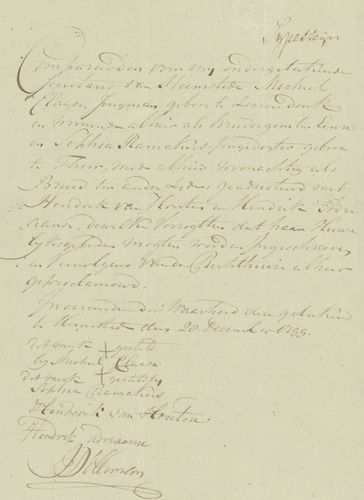 Compareerden voor mij ondergetekende
Secretaris van Heemstede Michiel
Claase, Jongman geboren te
en woonende alhier als Bruidegom ter eenre
en Sophia Ramakers, Jongedogter geboren
te Thoor, mede alhier woonachtig als
Bruid ter andere zide, geadsisteerd met
Hendrik van Houten en Hendrik
dewelke versogten dat haar Huwe
lyksgeboden mogten worden ingeschreeven
en vervolgens van de alhier
geproclameerd.
waarheid deze getekend
te Heemstede den 28 December 1799.
dit merk + gesteld
by Michiel Claase
dit merk + gesteld by
Sophia Ramakers
Hendrik van Houten
Hendrik Adriaanse